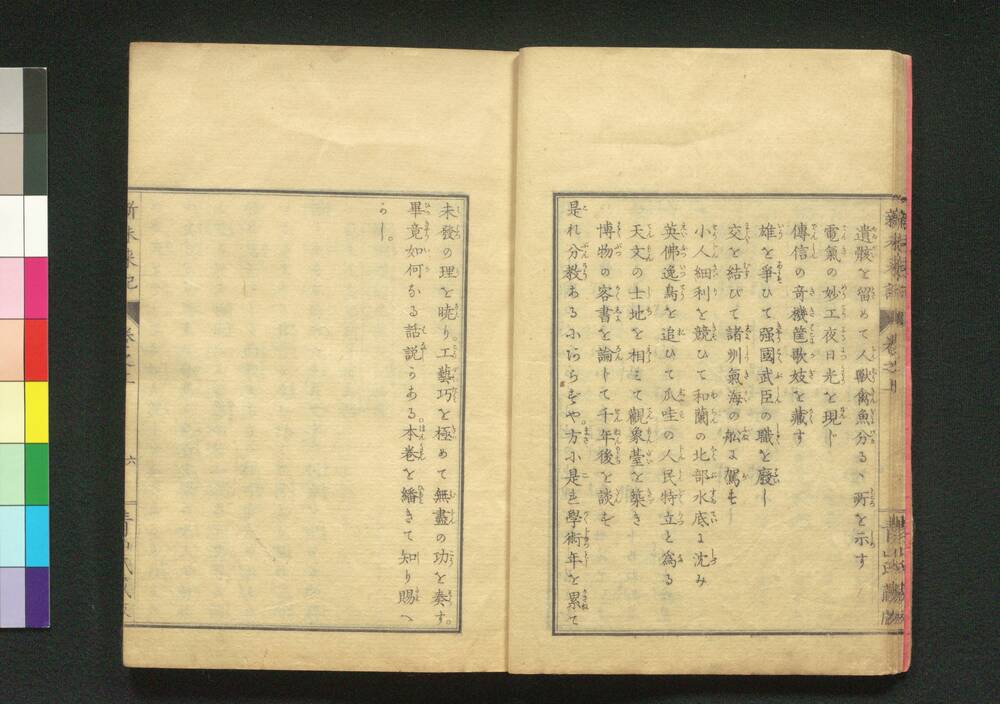 遺骸を留めて人獸禽魚分るゝ所を示す
電氣の妙工夜日光を現じ
傳信の奇機筐歌妓を藏す
雄を爭ひて强國武臣の職を廢し
交を結びて諸州氣海の船に駕す
小人細利を競ひて和蘭の北部水底に沈み
英佛逸島を追ひて爪哇の人民特立と爲る
天文の士地を相て觀象䑓を築き
博物の客書を論して千年後を談ず
是れ分教あるにあらずや。方に是れ學術年を累て
未發の理を曉り。工藝巧を極めて無盡の功を奏す。
畢竟如何なる話説かある。本巻を繙きて知り賜へ
かし。
新未來記
巻之上
六
青山氏藏